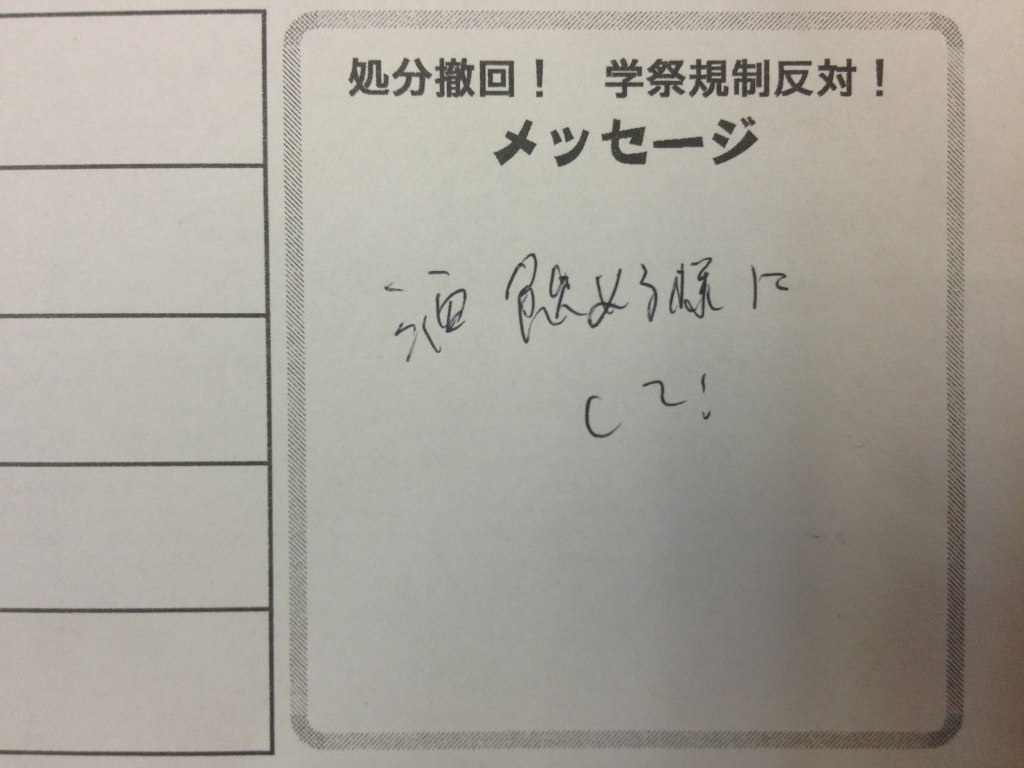 処分撤回！　学祭規制反対！
メッセージ
酒飲める様に
して!